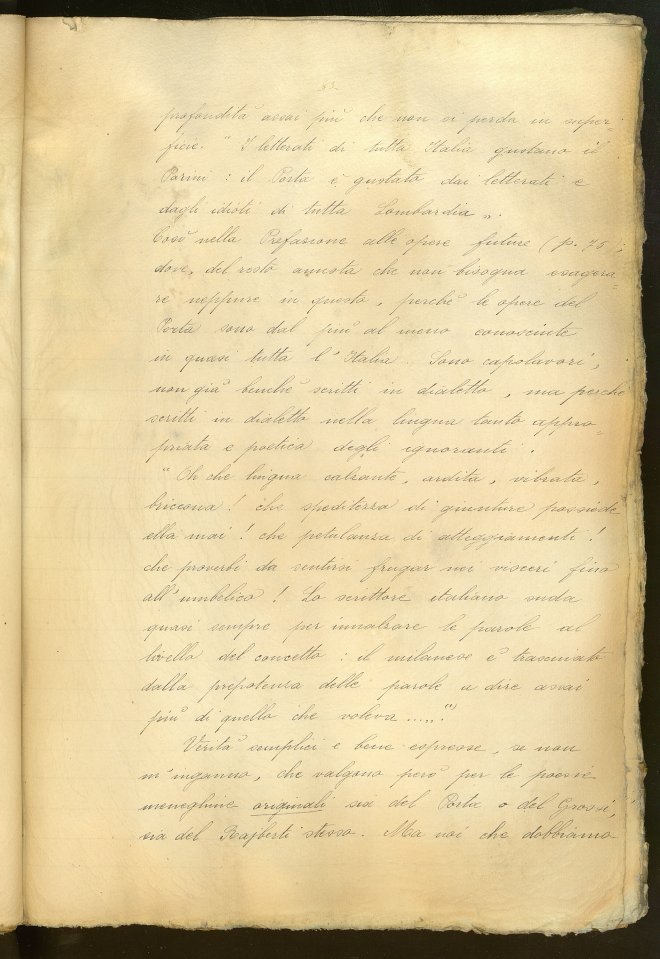 profondità assai più che non si perda in super-
ficie. " I letterati di tutta Italia gustano il
Parini : il Porta è gustato dai letterati e
dagli idioti di tutta Lombardia „.
Così nella Prefazione alle opere future ( p. 75 ;
dove, del resto annota che non bisogna esagera-
re neppure in questo, perchè le opere del
Porta sono dal più al meno conosciute
in quasi tutta l' Italia. Sono capolavori,
non già benchè scritti in dialetto, ma perchè
scritti in dialetto nella lingua tanto appro-
priata e poetica degli ignoranti.
" Oh che lingua calzante, ardita, vibrata,
briccona ! che speditezza di giunture possiede
ella mai ! che petulanza di atteggiamenti !
che proverbi da sentirsi frugar nei visceri fino
all' umbelico ! Lo scrittore italiano suda
quasi sempre per innalzare le parole al
livello del concetto : il milanese è trascinato
dalla prepotenza delle parole a dire assai
più di quello che voleva ..... "
Verità semplici e bene espresse, se non
m' inganno, che valgono però per le poesie
meneghine originali sia del Porta o del Grossi,
sia del Rajberti stesso. Ma noi che dobbiamo